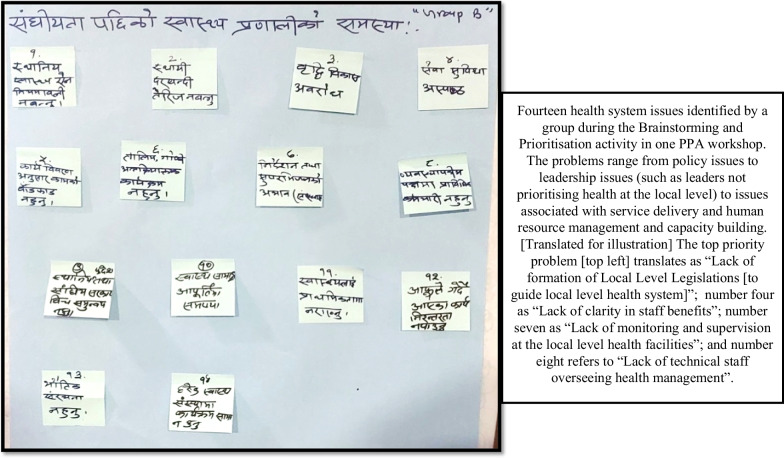 संघीयता पछिको स्वास्थ्य प्रणालीको समस्या!.
"Group B"
१.
स्थानिय
स्वास्थ्य ऐन
नियमावली
नबन्नु।
२.
स्थायी
दरबन्दी
तेरिज नबन्नु
३.
वृद्दि विकास
अवरोध
४.
सेवा सुविधा
अस्पष्ट
५.
कार्य विवरण
अनुसार कामको
बाँडफाड
नहुनु।
६.
तालिम, गोष्ठी
कार्यक्रम
नहुनु।
७.
निर्देशन तथा
सुपरभिजनको
अभाव
८.
प्राविधिक
कर्मचारी नहुनु
९
स्थानिय तथा
संघिय सरकार
बिच समन्वय
१०
स्वास्थ्य सामग्री
आपूर्तिका
समस्या
११.
स्वास्थ्यलाई
प्राथमिकतामा
नराख्नु।
१२.
आफूले गर्दै
आएको कार्य
निरन्तरता
नपाउनु
१३.
भौतिक
संरचना
नहुनु।
१४
हरेक स्वास्थ्य
संस्थामा
कार्यक्रम
नहुनु
Fourteen health system issues identified by a
group during the Brainstorming and
Prioritisation activity in one PPA workshop.
The problems range from policy issues to
leadership issues (such as leaders not
prioritising health at the local level) to issues
associated with service delivery and human
resource management and capacity building.
[Translated for illustration] The top priority
problem [top left] translates as “Lack of
formation of Local Level Legislations [to
guide local level health system]”; number four
as “Lack of clarity in staff benefits”; number
seven as “Lack of monitoring and supervision
at the local level health facilities”; and number
eight refers to “Lack of technical staff
overseeing health management”.